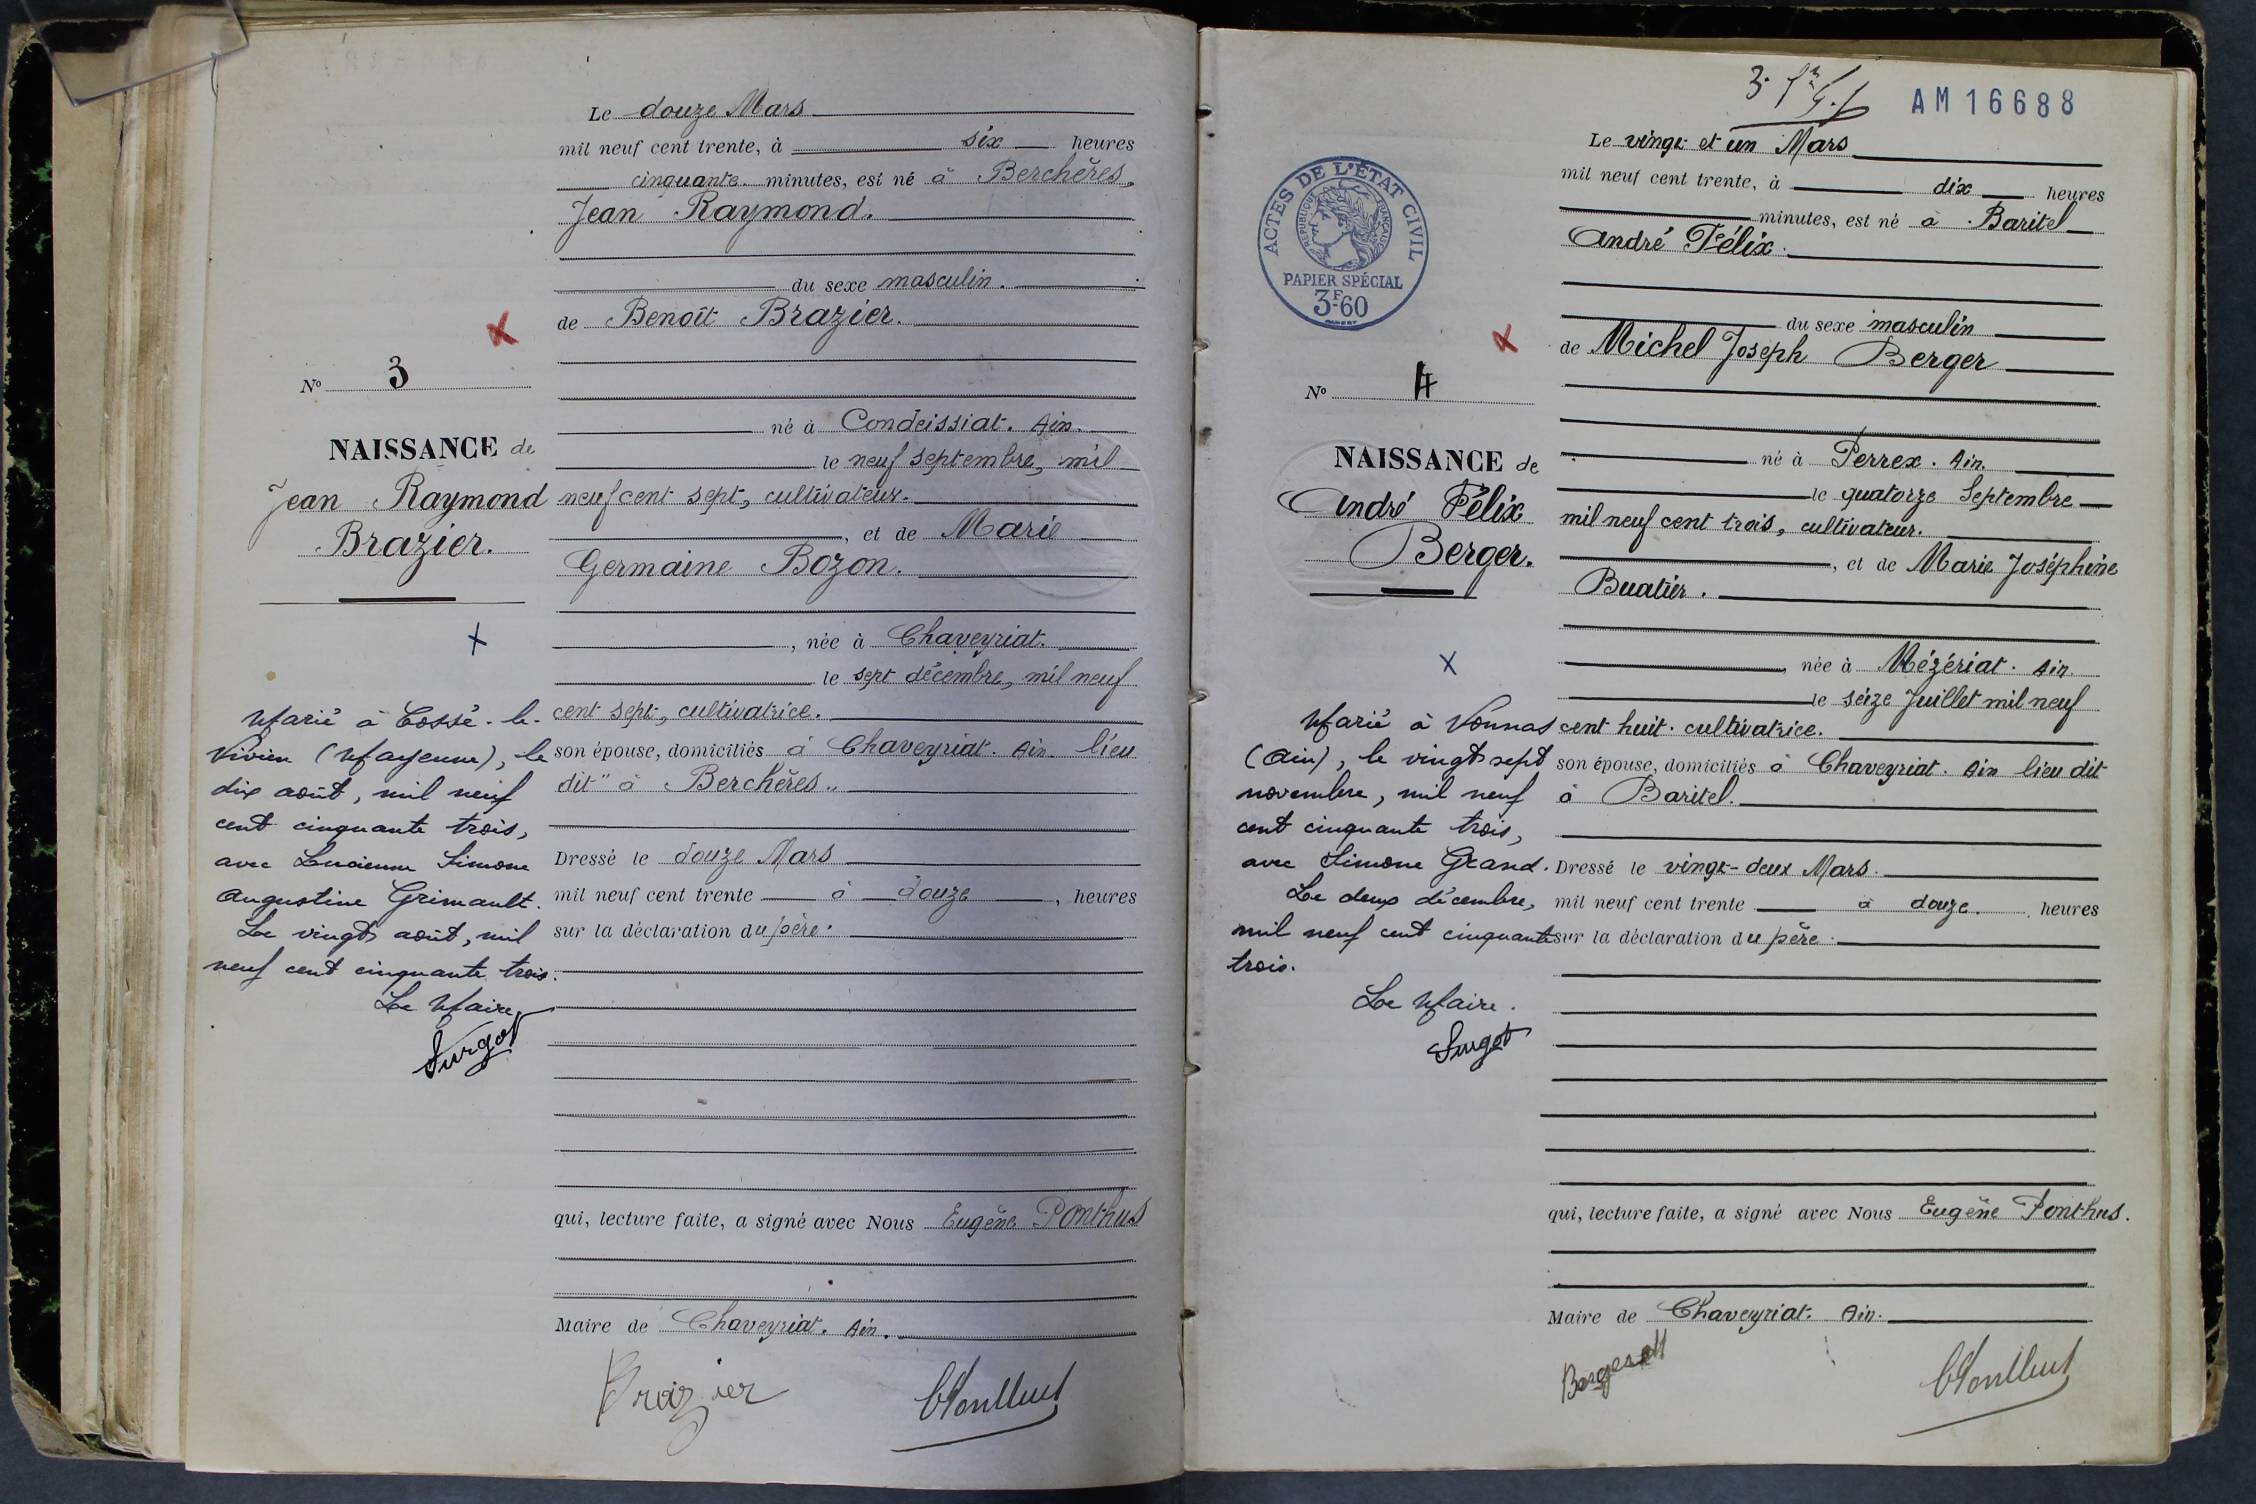 Le douze Mars
mil neuf cent trente, à six heures
cinquante minutes, est né à Berchères,
Jean Raymond.
du sexe masculin.
de Benoît Brazier.
N° 3
né à Condeissiat. Ain.
NAISSANCE de
le neuf septembre, mil
Jean Raymond
neuf cent sept, cultivateur.
Brazier.
, et de Marie
Germaine Bozon.
, née à Chaveyriat.
le sept décembre, mil neuf
cent sept, cultivatrice.
son épouse, domiciliés à Chaveyriat. Ain. lieu
dit "à Berchères"
Dressé le douze Mars
mil neuf cent trente à douze, heures
sur la déclaration du père.
Marié à Cossé-le-
Vivien (Mayenne), le
dix août, mil neuf
cent cinquante trois,
avec Lucienne Simone
Augustine Grimault.
Le vingt août, mil
neuf cent cinquante trois.
Le Maire,
Surgot
qui, lecture faite, a signé avec Nous Eugène Ponthus
Maire de Chaveyriat. Ain.
Brazier
EPonthus
AM16688
Le vingt et un Mars
mil neuf cent trente, à dix heures
minutes, est né à Baritel
André Félix.
du sexe masculin
de Michel Joseph Berger
ACTES DE L'ÉTAT CIVIL
RÉPUBLIQUE FRANÇAISE
PAPIER SPÉCIAL
3F60
N° 4
né à Perrex. Ain.
NAISSANCE de
le quatorze Septembre
André Félix
mil neuf cent trois, cultivateur.
Berger.
, et de Marie Joséphine
Buatier.
née à Mézériat. Ain.
le seize Juillet mil neuf
cent huit. cultivatrice.
son épouse, domiciliés à Chaveyriat. Ain lieu dit
à Baritel.
Dressé le vingt-deux Mars.
mil neuf cent trente à douze. heures
sur la déclaration du père.
Marié à Vonnas
(Ain), le vingt sept
novembre, mil neuf
cent cinquante trois,
avec Simone Grand.
Le deux décembre,
mil neuf cent cinquante
trois.
Le Maire.
Surgot
qui, lecture faite, a signé avec Nous Eugène Ponthus.
Maire de Chaveyriat. Ain.
EPonthus